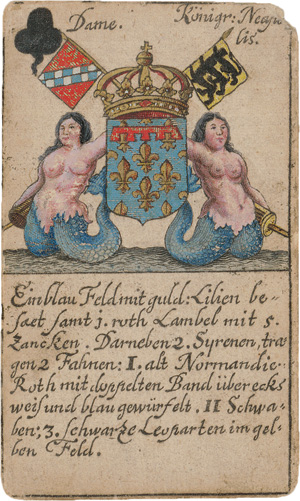 Dame.
Königr: Neapo
lis.
Ein blau Feld mit guld: Lilien be-
säet samt j. roth Lambel mit 5.
Zancken. Darneben 2. Syrenen, tra
gen 2 Fahnen: I. alt Normandie-
Roth mit doppelten Band über ecks
weis und blau gewürfelt. II Schwa-
ben; 3. schwarze Leoparten im gel-
ben Feld.